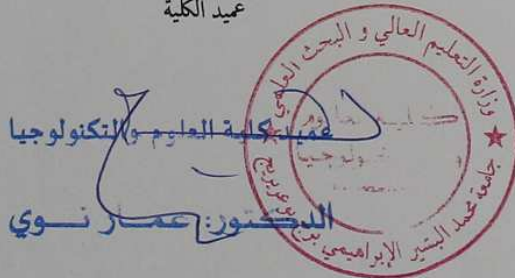 عميد الكلية
وزارة التعليم العالي و البحث العلمي
جامعة محمد البشير الإبراهيمي برج بوعريريج
عميد كلية العلوم والتكنولوجيا
الدكتور: عمار نوي